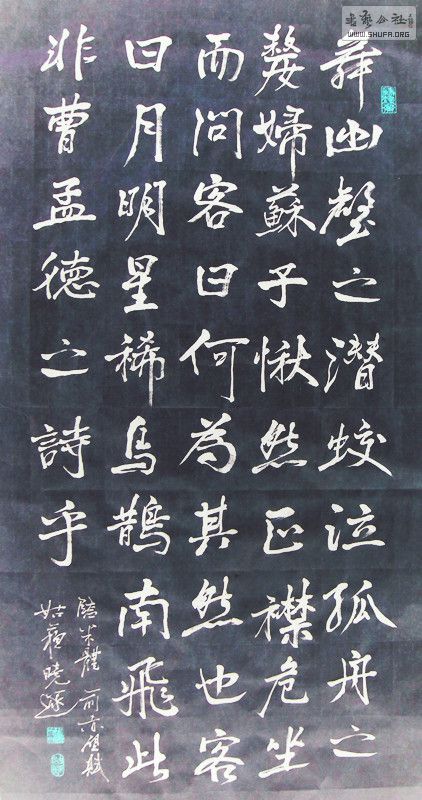 舞幽壑之潜蛟泣孤舟之
嫠婦蘇子愀然正襟危坐
而問客曰何為其然也客
曰月明星稀烏鵲南飛此
非曹孟德之詩乎
臨米體前赤壁賦
姑蘇曉
WWW.SHUFA.ORG